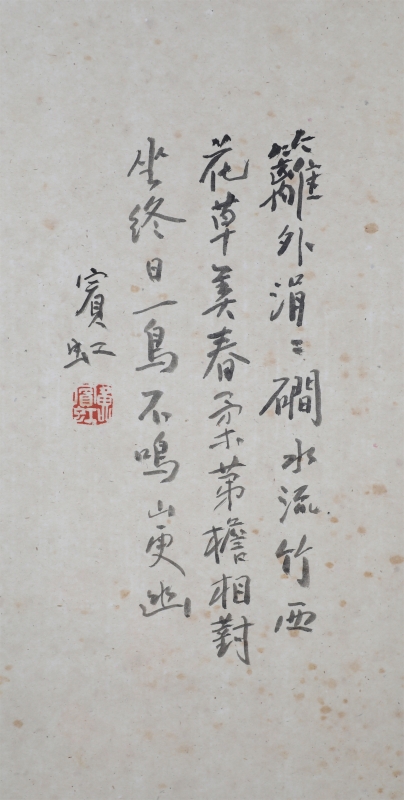 籬外涓〻磵水流竹西
花草美春柔茅檐相對
坐終日一鳥不鳴山更幽
賓虹
黃賓虹